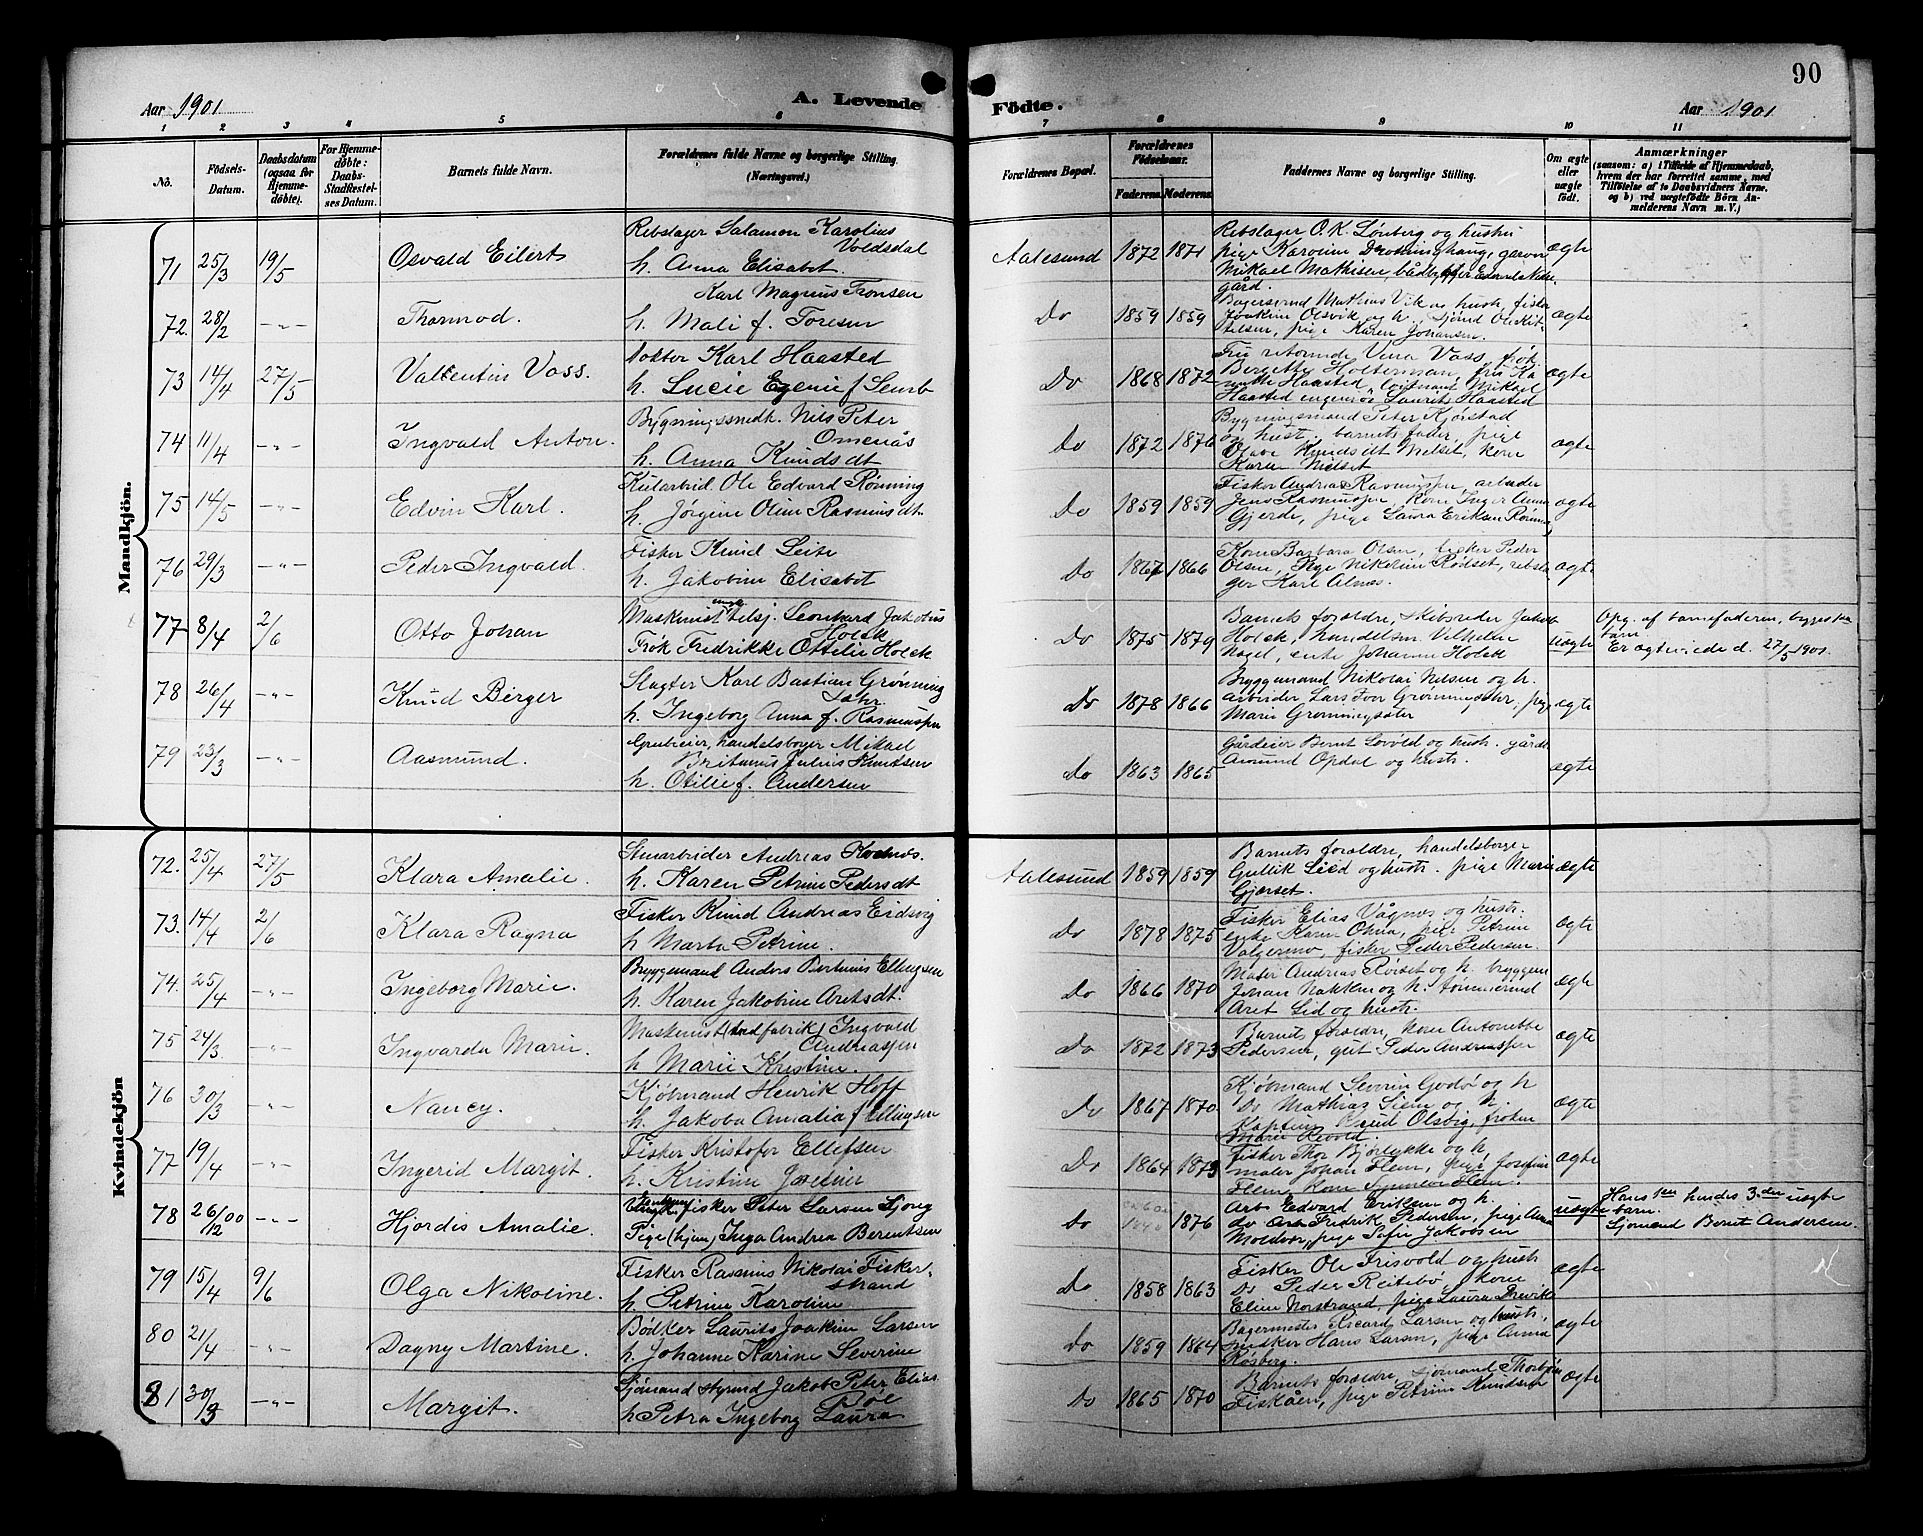 90
Aar 1901
A. Levende Födte.
Aar 1901
1 2 3 4 5 6 7 8 9 10 11
No.
Födsels-Datum.
Daabsdatum (ogsaa for Hjemmedöbte).
For Hjemmedöbte: Daabs-Stadfæstelses Datum.
Barnets fulde Navn.
Forældrenes fulde Navne og borgerlige Stilling. (Næringsvei.)
Forældrenes Bopæl.
Forældrenes Födselsaar.
Faderens. Moderens.
Faddernes Navne og borgerlige Stilling.
Om ægte eller uægte födt.
Anmærkninger
(saasom: a) i Tilfælde af Hjemmedaab, hvem der har forrettet samme, med Tilföielse af to Daabsvidners Navne, og b) ved uægtefödte Börn Anmelderens Navn m. V.)
Mandkjön.
71 25/3 19/5 Osvald Eilert
Rebslager Salamon Karolius Voldsdal
h. Anna Elisabet.
Aalesund 1872 1871
Rebslager O. K. Lönberg og hustru
pige Karoline Dronninghaug, garver
Mikael Mathisen, bådbygger
gård.
ægte
72. 28/2 -"- Thormod.
Karl Magnus Tronsen
h. Mali f. Toresen
Do 1859 1859
Mathias Vik og hust. fisker
Joakim Olsvik og h.
pige Karen Johansen.
ægte
73 14/4 27/5 Valentin Voss.
Doktor Karl Haasted
h. Lucie Egenie f
Do 1868 1872
Fru Vera Voss, frøk.
Bergette Holterman, fru
Haasted, løitnant Mikael
Haasted, Laurits Haasted
ægte
74. 11/4 -"- Ingvald Anton.
Bygningssnedk. Nils Peter
Omenås
h. Anna Knudsdt
Do 1872 1876
Bygningsmand Peter Kjørstad
og hust., barnets fader, pige
Olave Knudsdt Nielset, kone
Karen Nielset
ægte
75 14/5 -"- Edvin Karl.
Kularbeid. Ole Edvard Rønning
h. Jørgine Olina Rasmusdt.
Do 1859 1859
Fisker Andreas Rasmussen, arbeider
Jens Rasmussen, kone Inger Anna
Gjerde, pige Laura Eriksen
ægte
76 29/3 -"- Peder Ingvald.
Fisker Knud Leite
h. Jakobine Elisabet
Do 1867 1866
Kone Barbara Olsen, fisker Peder
Olsen, Pige Nikoline Rødset, rebsla-
ger Karl Alnes.
ægte
77 8/4 2/6 Otto Johan
Maskinist Leonhard Jakobus
Holck
Frøk Fredrikke Ottelie Holck
Do 1875 1879
Barnets forældre, skibsreder Jakob
Holck, handelsm Vilhelm
Nagel, enke Johanne Holck
uægte
Opg. af barnefaderen, begges 1ste
barn.
Er ægteviede d. 27/5 1901
78 26/4 -"- Knud Birger
Slagter Karl Bastian Grønning
sæter
h. Ingeborg Anna f. Rasmussen
Do 1878 1866
Bryggemand Nikolai Nilsen og h.
arbeider Lars Ivar Grønningsæter, pige
Marie Grønningsæter
ægte
79 23/3 -"- Aasmund.
handelsborger Mikael
Britanus Julius Knutsen
h. Otilie f. Andersen
Do 1863 1865
Gårdeier Bernt Løvold og hustr. gårdb.
Amund Opdal og hustr.
ægte
Kvindekjön
72. 25/4 27/5 Klara Amalie.
Stenarbeider Andreas
h. Karen Petrine Pedersdt
Aalesund 1859 1859
Barnets forældre, handelsborger
Gullik Lied og hustr. pige Marie
Gjærset.
ægte
73. 14/4 2/6 Klara Ragna
Fisker Knud Andreas Eidsvig
h Marta Petrine.
Do 1878 1875
Fisker Elias Vågnes og hustr.
enke Karen Ohna, pige Petrine
fisker Peder Pedersen.
ægte
74. 25/4 -"- Ingeborg Marie.
Bryggemand Anders Bertinius Ellingsen
h. Karen Jakobine Aretsdt.
Do 1866 1870
Maler Andreas Røiset og h. bryggem
Johan Nakken og h. tømmermd
Aret Lid og hustr.
ægte
75 24/3 -"- Ingvarda Marie.
Maskinist Ingvald
Andreassen
h Marie Kristine.
Do 1872 1873
Barnets forældre, kone Antonette
Pedersen, gut Peder Andreassen
ægte
76 30/3 -"- Nancy.
Kjøbmand Henrik Hoff
h. Jakoba Amalia f Ellingsen
Do 1867 1870
Kjøbmand Severin Godø og h
Do Mathias Siem og h.
Kaptein Knud Olsvig, frøken
Marie Revold.
ægte
77 19/4 -"- Ingerid Margit.
Fisker Kristofer Ellefsen
h. Kristine
Do 1864 1873
Fisker Thor Bjørlykke og h,
maler Johan Flem, pige Josefine
Flem, kone
ægte
78 26/12 00 -"- Hjordis Amalie.
fisker Peter Larsen Sjong
Pige (hjem) Inga Andrea Berentsen
Do 1876
Arb Edvard Eriksen og h.
do Fredrik Pedersen, pige Anna
pige Sofie Jakobsen
uægte
Hans 1ste hendes 3die uægte
barn.
Sjømand Bernt Andersen.
79 15/4 9/6 Olga Nikoline.
Fisker Rasmus Nikolai Fisker-
strand
h. Petrine Karoline
Do 1858 1863
Fisker Ole Frisvold og hustr
Do Peder Reitebø, kone
Eline Norstrand, pige Laura
ægte
80 21/4 -"- Dagny Martine.
Bødker Laurits Joakim Larsen
h. Johanne Karine Severine
Do 1859 1864
Bagermester Ricard Larsen og hustr,
Hans Larsen, pige Anna
Røsberg.
ægte
81 30/3 -"- Margit.
Sjømand Jakob Peter Elias
Roe
h Petra Ingeborg Laura
Do 1865 1870
Barnets forældre, sjømand Thorbjørn
Fiskåen, pige Petrine Knudsen
ægte